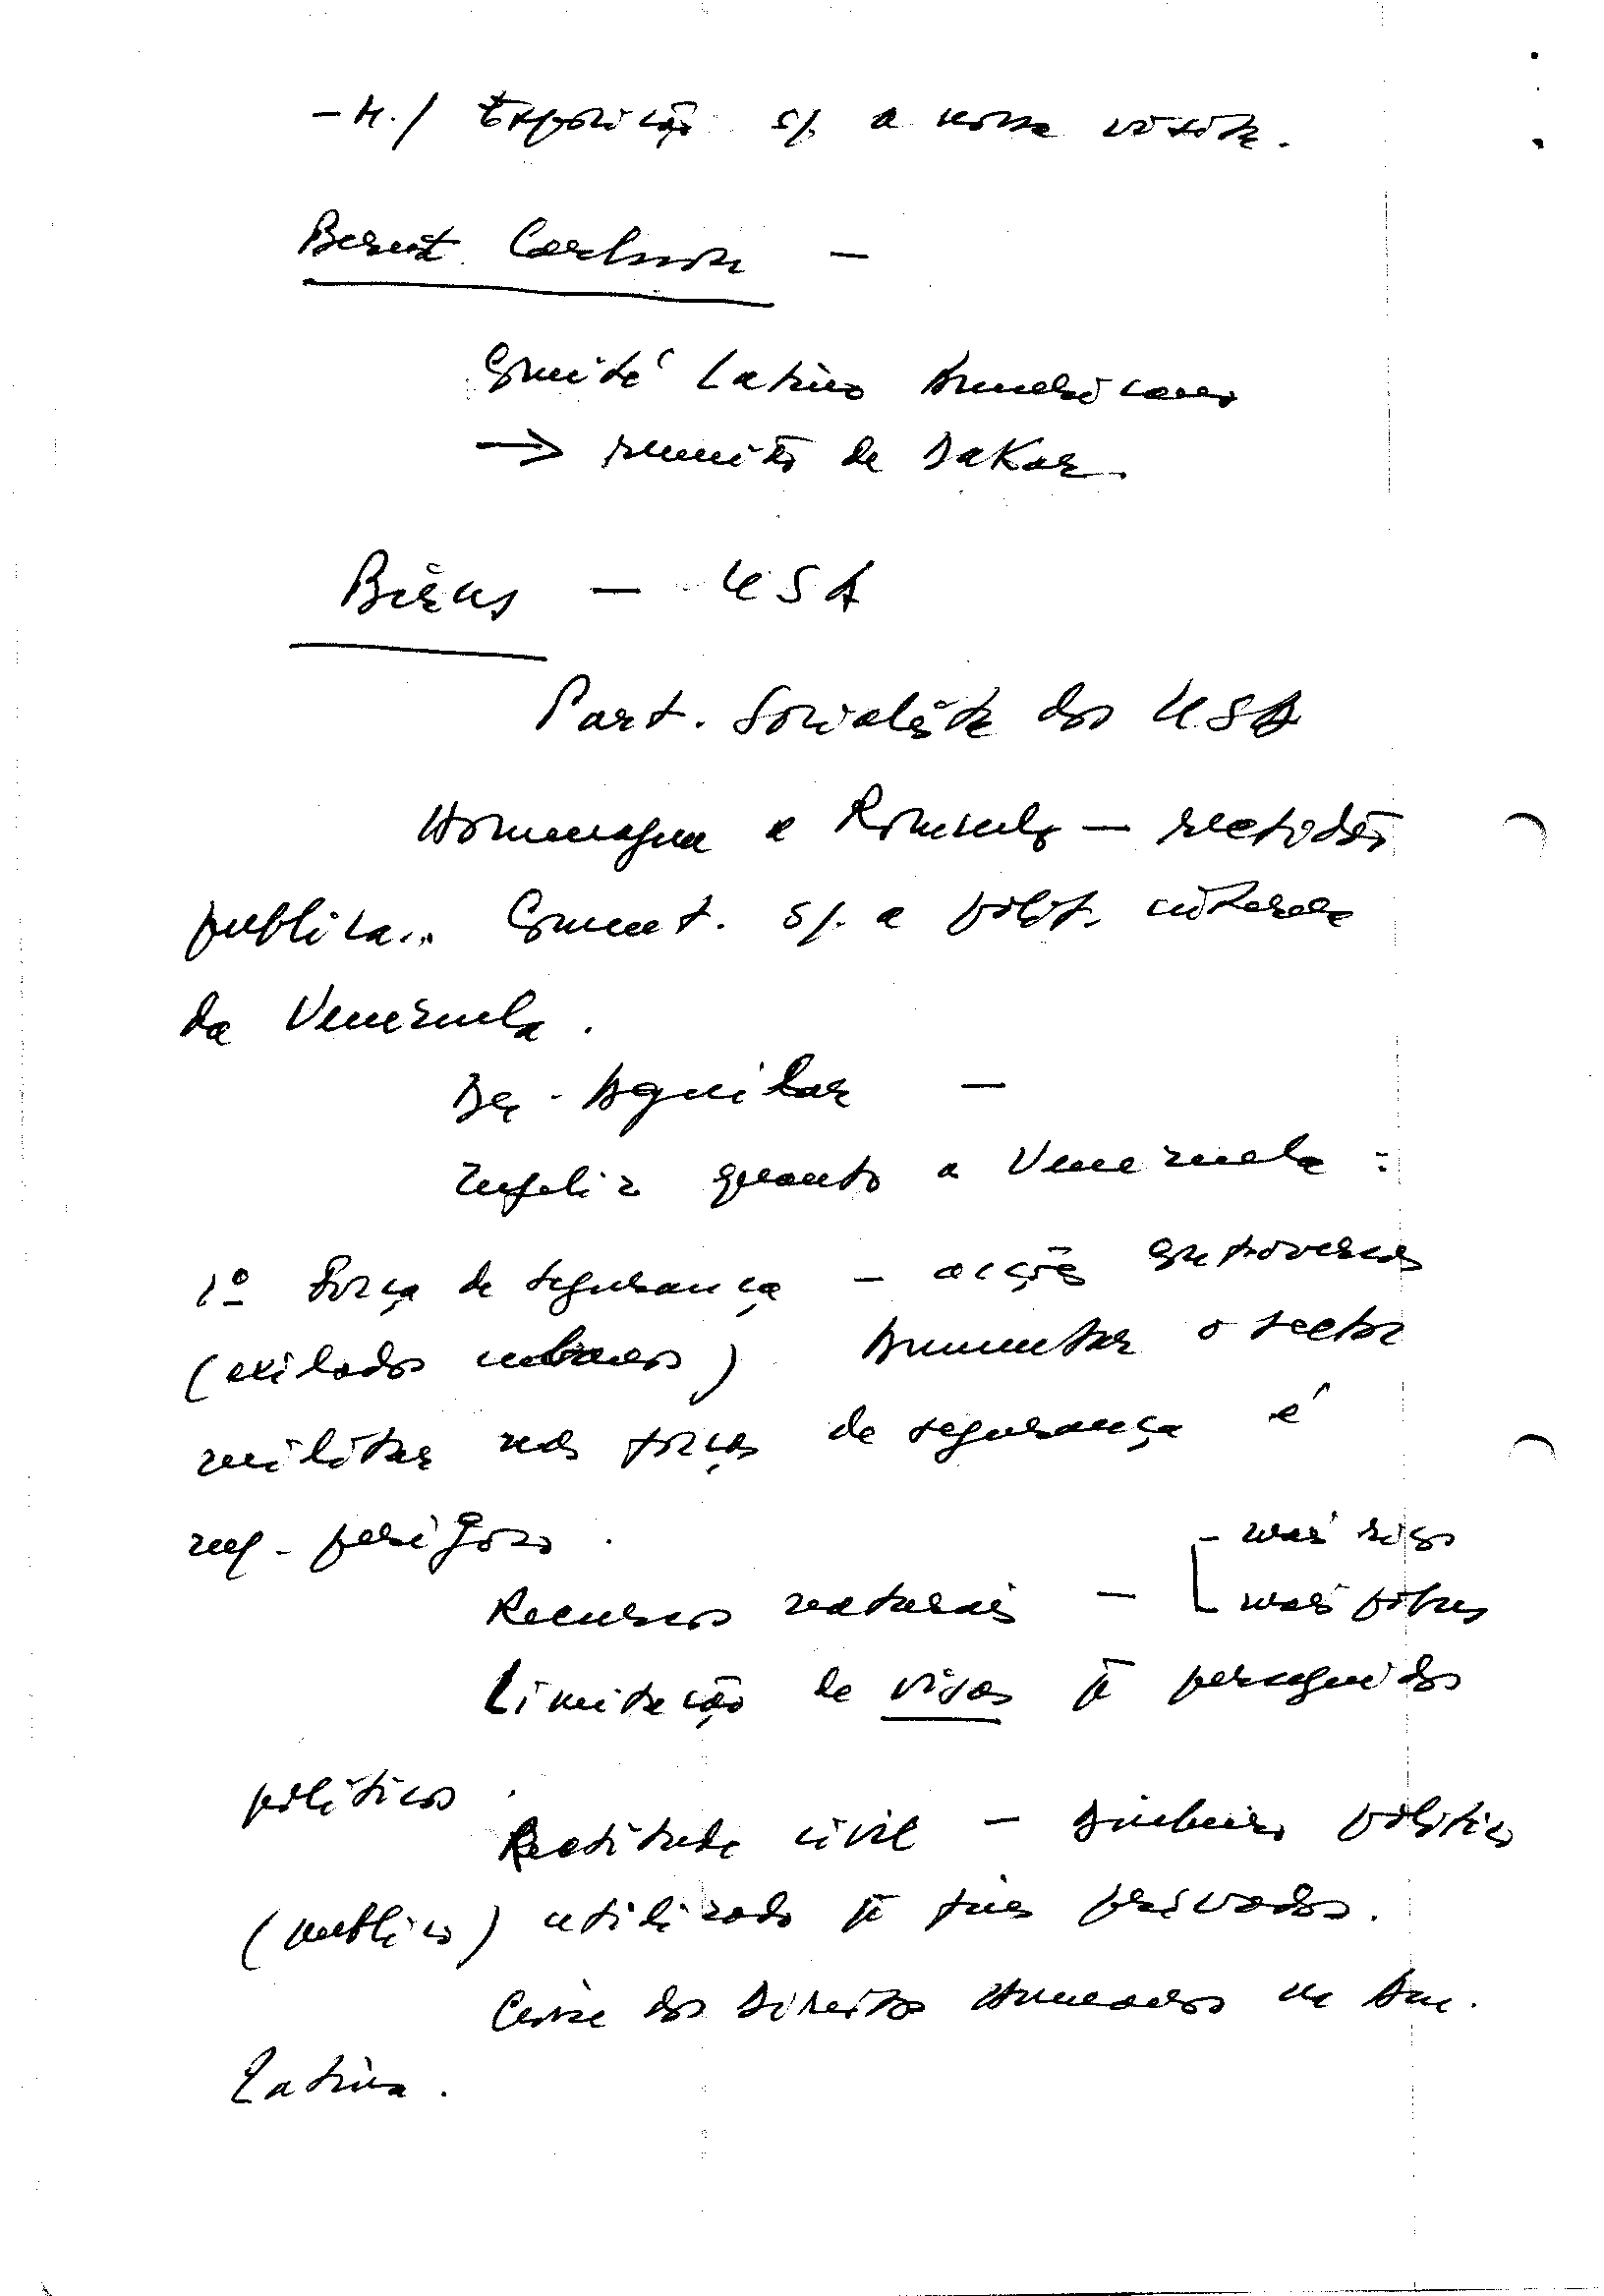 - M. / Exposição s/. a nossa visita.
Bernt Carlsson -
Comité Latino Americano
→ reunião de Dakar.
- USA
Part. Socialista dos USA
Homenagem a Rómulo -
publica... Coment. s/. a polít. interna
da Venezuela.
Dr. Aguilar -
Infeliz quanto a Venezuela:
1º Força de segurança - acções controversas
(exilados cubanos) Aumentar o sector
militar nas forças de segurança é
mt. perigoso.
- mais ricos
Recursos naturais - mais pobres
Limitação de visas p. perseguidos
políticos.
Rectitude civil - Dinheiro político
(publico) utilizado p. fins privados.
dos Direitos Humanos na Am.
Latina.